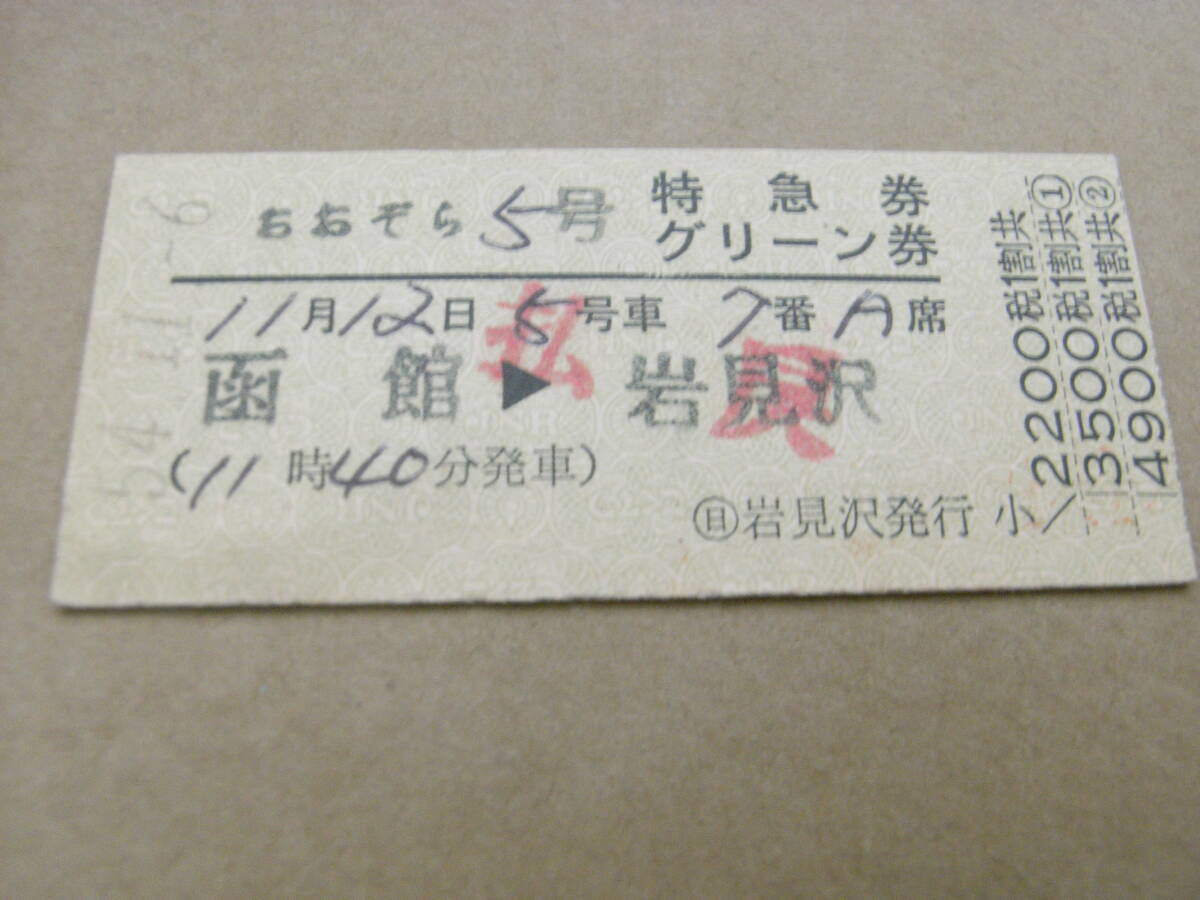 おおぞら5号 特急券
グリーン券
11月12日 5号車 7番A席
函館▶岩見沢
(11時40分発車)
㊐岩見沢発行 小/
2200税1割共
3500税1割共①
4900税1割共②
54.11.-6